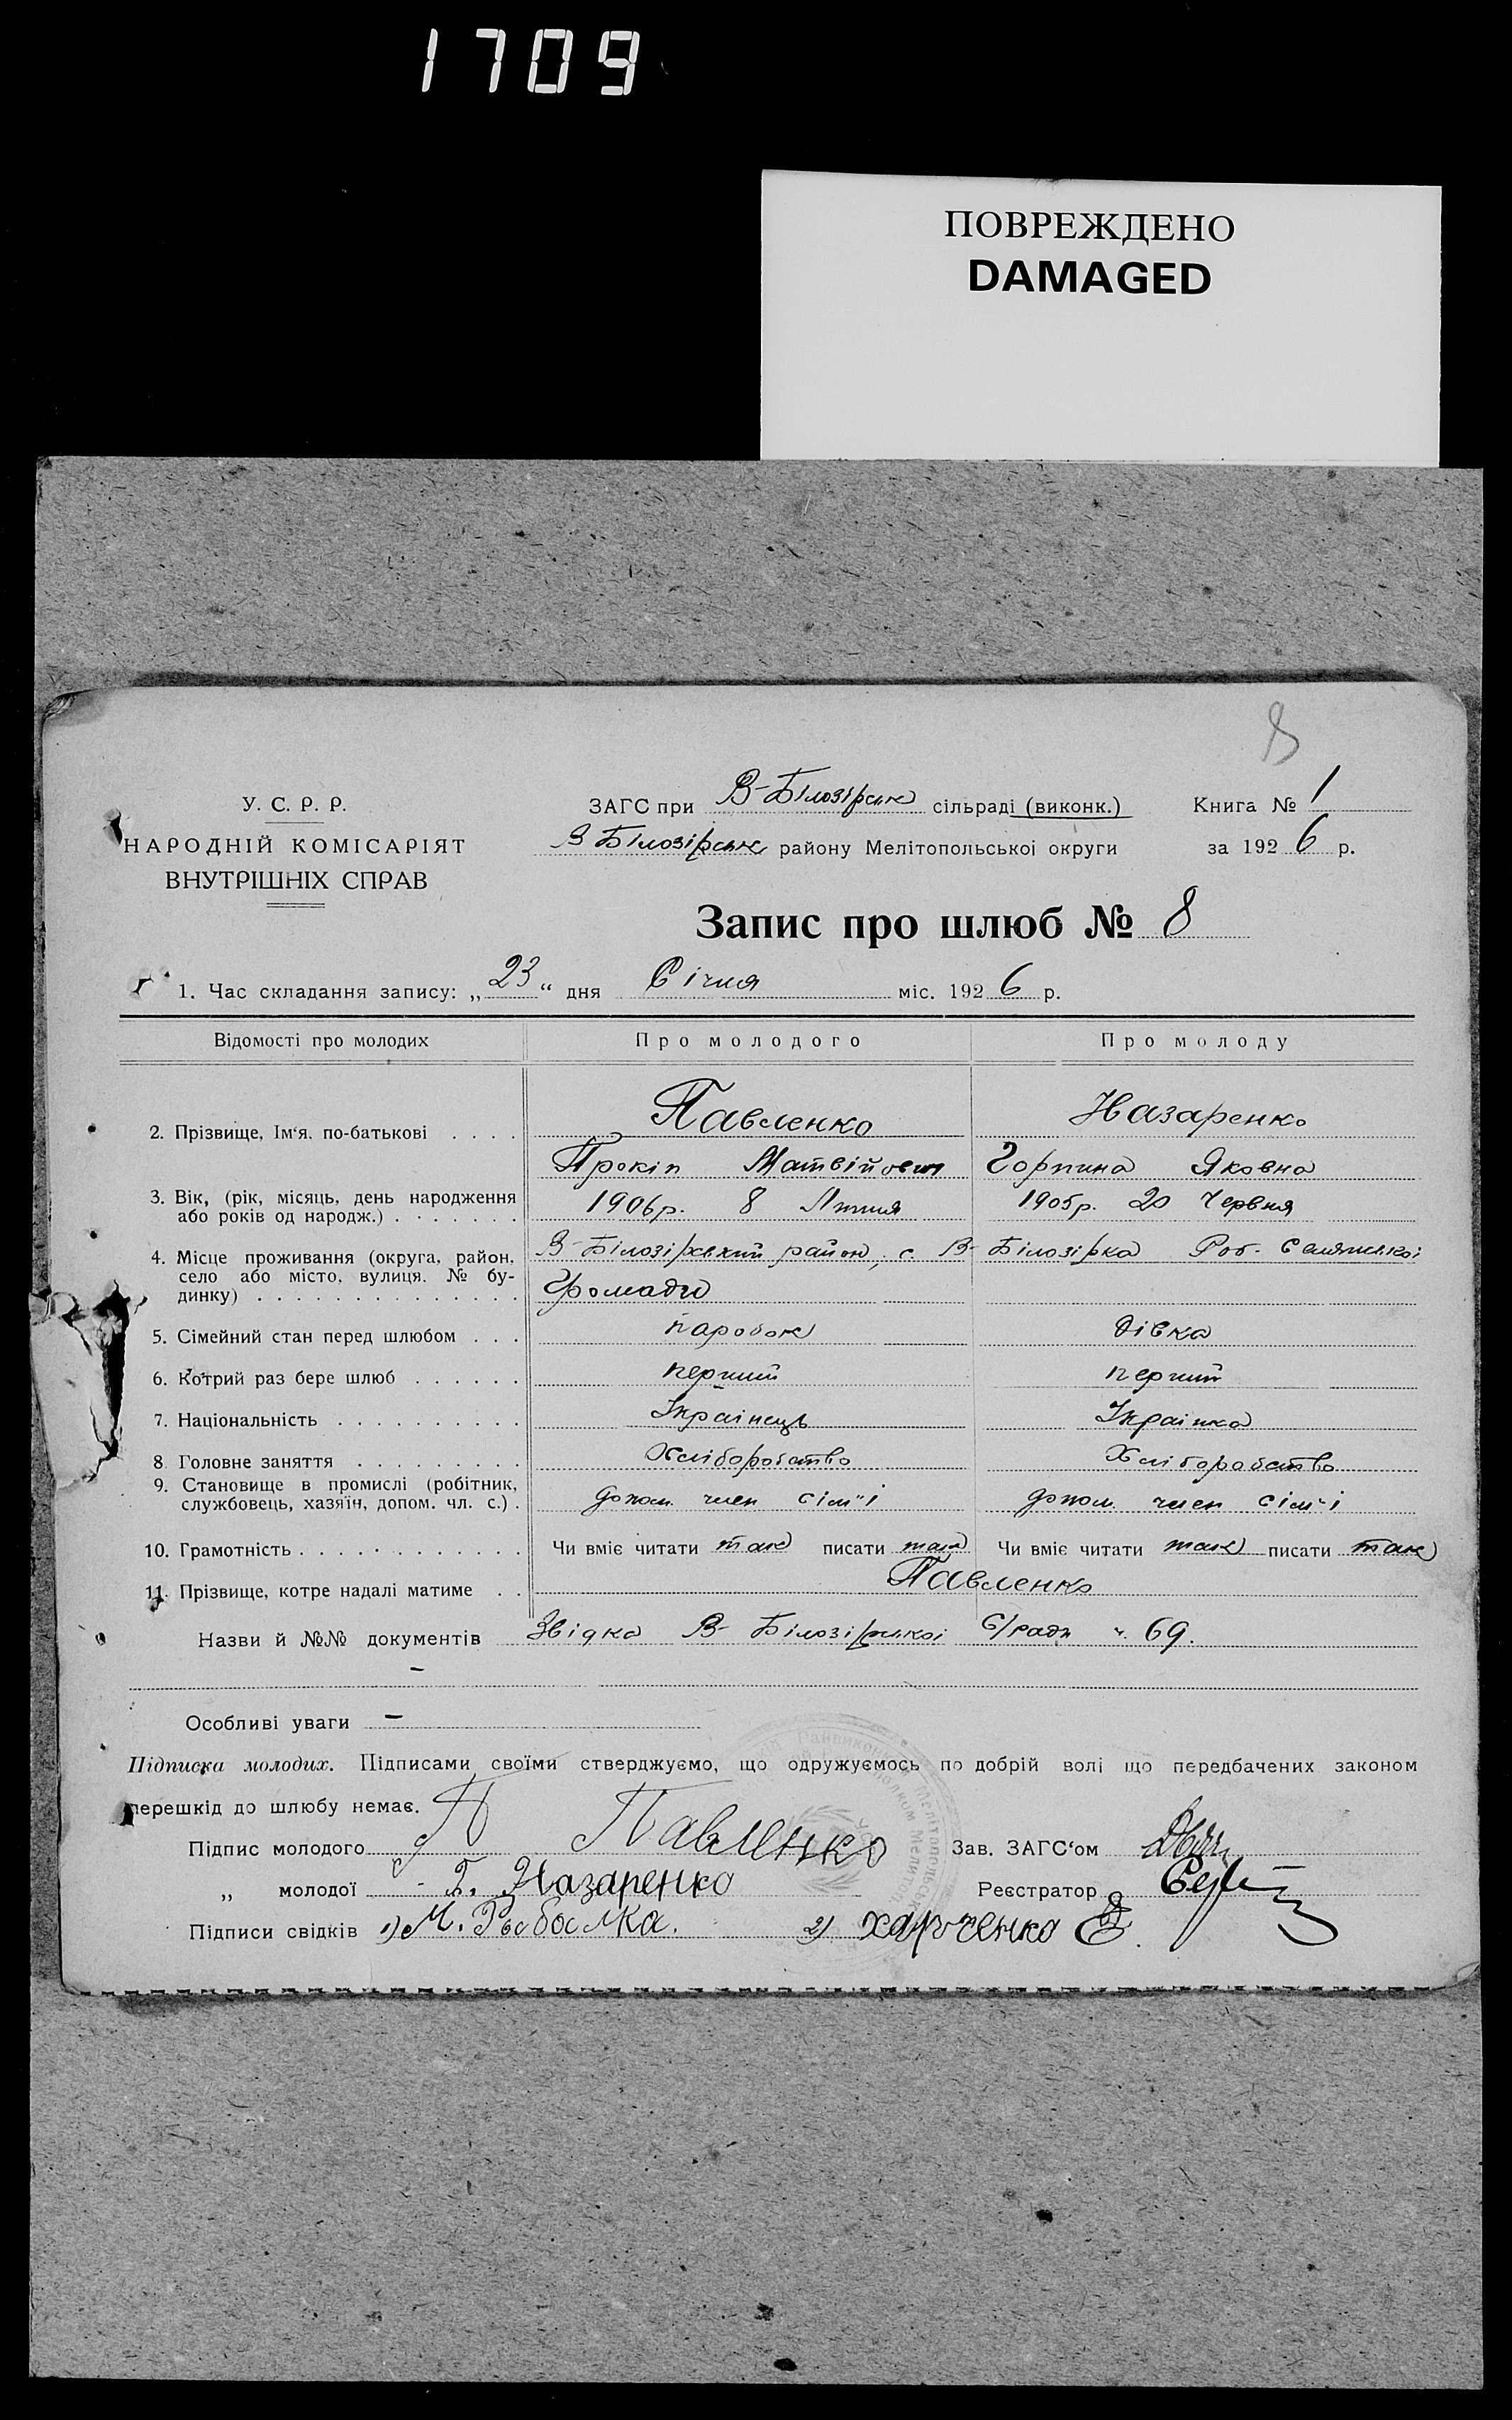 1709
ПОВРЕЖДЕНО
DAMAGED
8
У. С. Р. Р.
НАРОДНІЙ КОМІСАРІЯТ
ВНУТРІШНІХ СПРАВ
ЗАГС при В-Білозірськ сільраді (виконк.)
В Білозірськ району Мелітопольської округи
Книга № 1
за 1926 р.
Запис про шлюб № 8
1. Час складання запису: „23“ дня Січня міс. 1926 р.
Відомості про молодих Про молодого Про молоду
2. Прізвище, Ім‘я, по-батькові . . . . Павленко Назаренко
Прокіп Матвійович Горпина Яковна
3. Вік, (рік, місяць, день народження 1906р. 8 Липня 1905р. 20 Червня
або років од народж.) . . . . . . .
4. Місце проживання (округа, район, В-Білозірський район, с. В-Білозірка Роб-Селянської
село або місто, вулиця. № бу-
динку) . . . . . . . . . . . . . . Громади
5. Сімейний стан перед шлюбом . . . паробок дівка
6. Котрий раз бере шлюб . . . . . . перший перший
7. Національність . . . . . . . . . . Українець Українка
8. Головне заняття . . . . . . . . . Хліборобство Хліборобство
9. Становище в промислі (робітник, допом. член сім"ї допом. член сім"ї
службовець, хазяїн, допом. чл. с.) .
10. Грамотність . . . . . . . . . . . . Чи вміє читати так писати так Чи вміє читати так писати так
11. Прізвище, котре надалі матиме . . Павленко
Назви й №№ документів Звідка В-Білозірської С/ради ч. 69.
–
Особливі уваги –
Підписка молодих. Підписами своїми стверджуємо, що одружуємось по добрій волі що передбачених законом
перешкід до шлюбу немає.
Підпис молодого П Павленко Зав. ЗАГС‘ом
„ молодої Г. Назаренко Реєстратор
Підписи свідків 1) М. Рыбалка. 2) Харченко